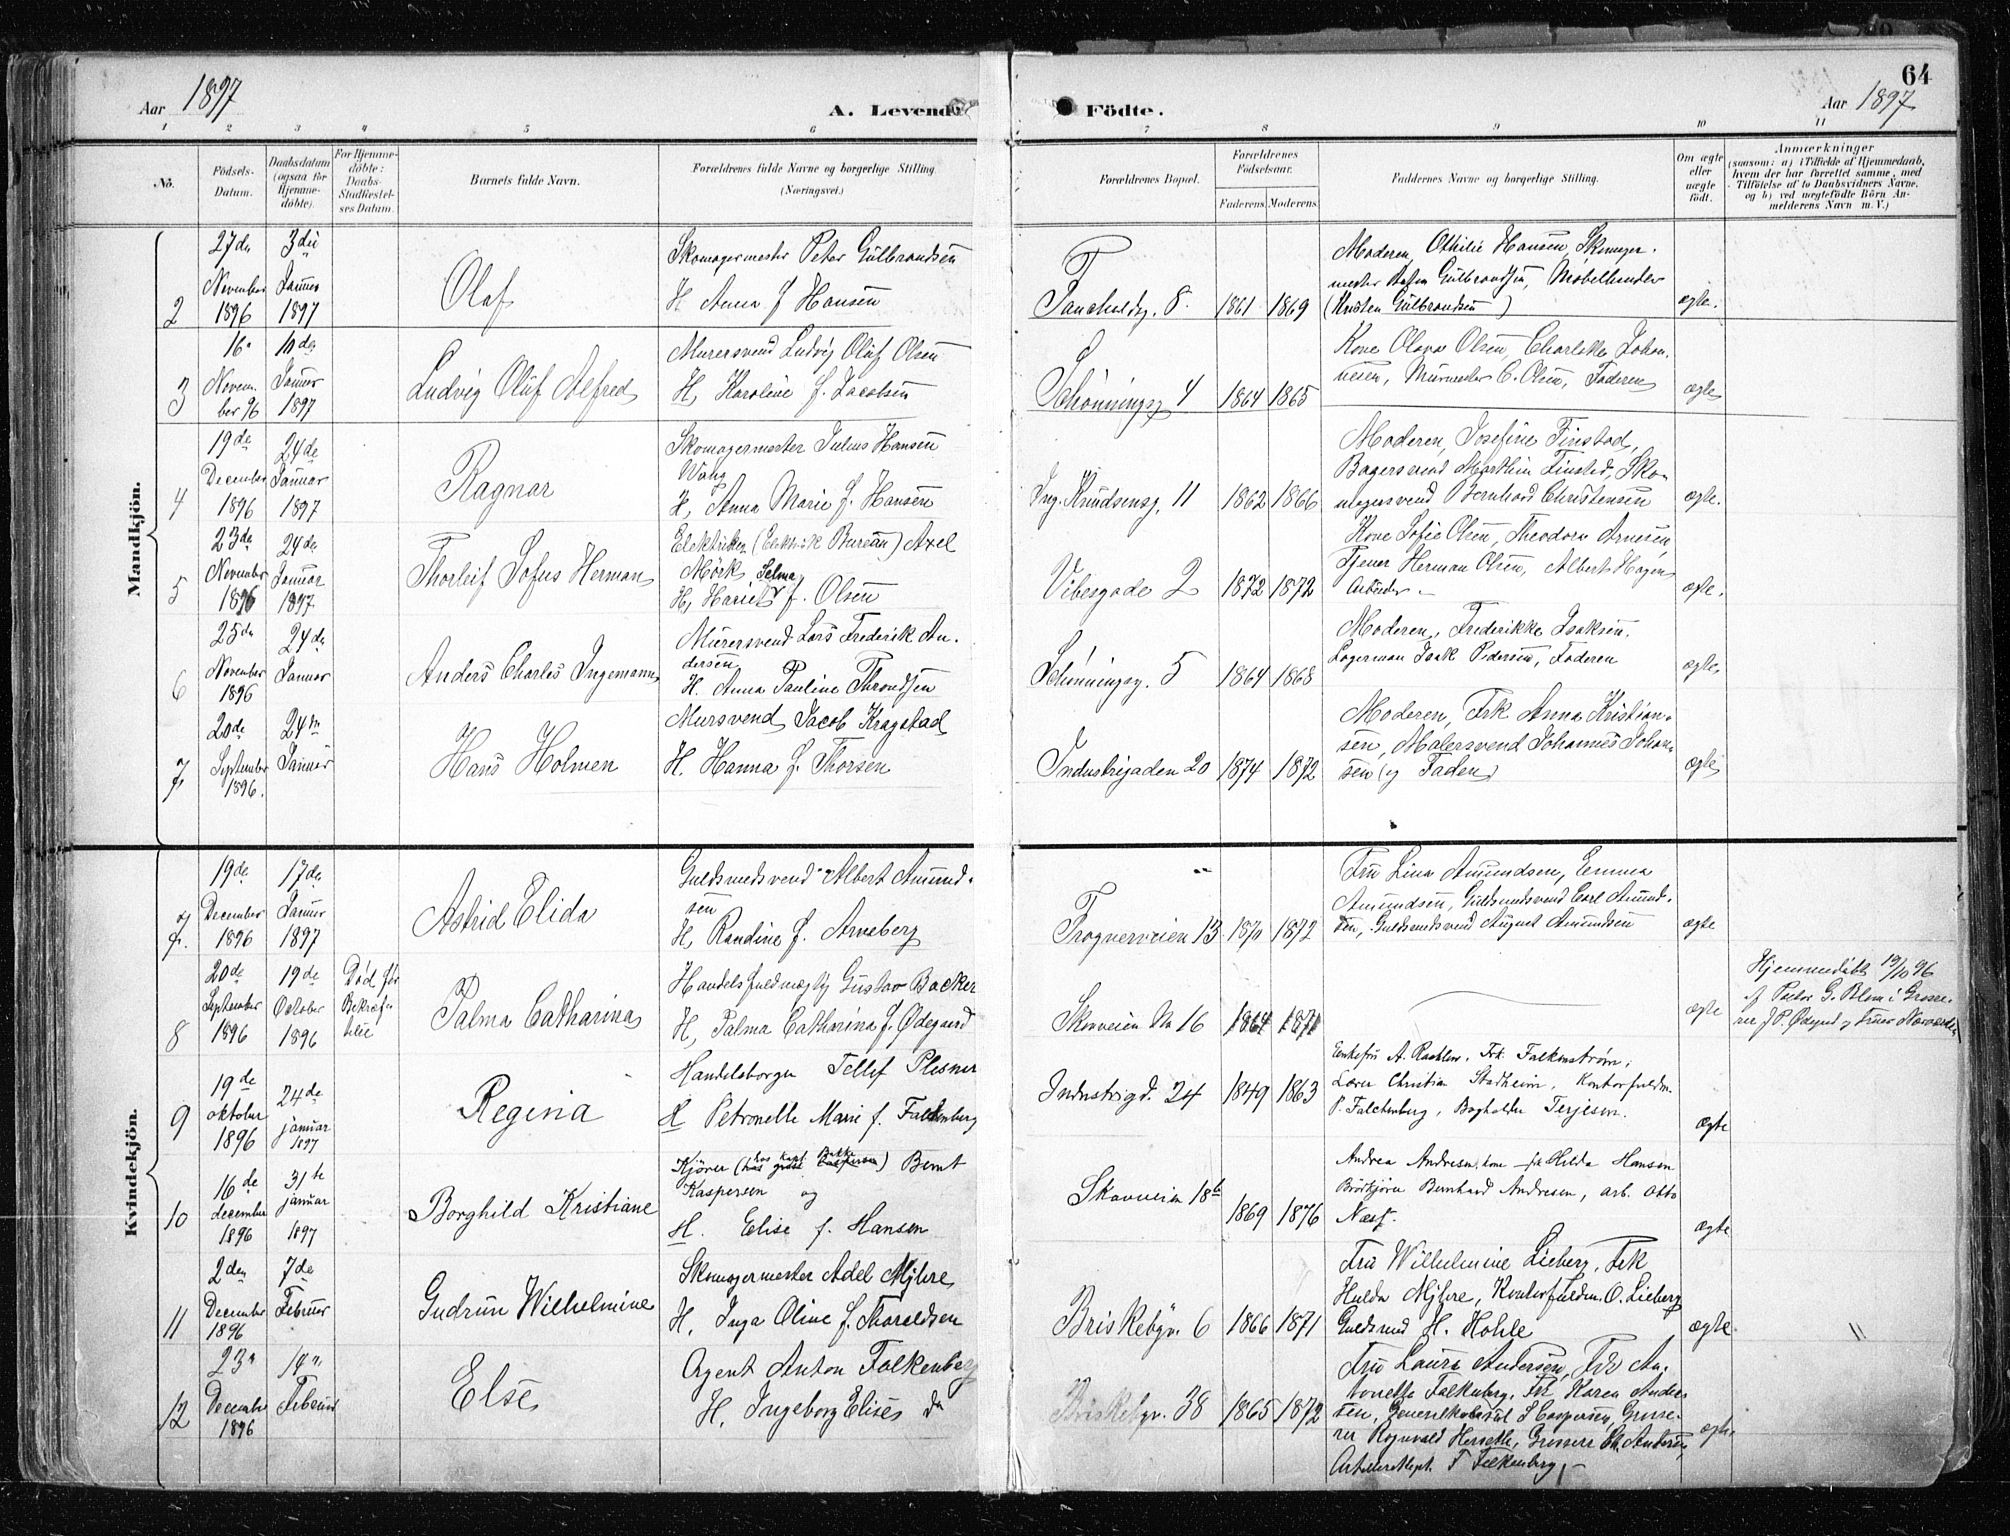 64
Aar 1897
A. Levende Födte.
Aar 1897
1 2 3 4 5 6 7 8 9 10 11
No.
Födsels-Datum.
Daabsdatum (ogsaa for Hjemmedöbte).
For Hjemmedöbte: Daabs-Stadfæstelses Datum.
Barnets fulde Navn.
Forældrenes fulde Navne og borgerlige Stilling (Næringsvei.)
Forældrenes Bopæl.
Forældrenes Födselsaar.
Faderens. Moderens.
Faddernes Navne og borgerlige Stilling.
Om ægte eller uægte födt.
Anmærkninger
(saasom: a) i Tilfælde af Hjemmedaab, hvem der har forrettet samme, med Tilföielse af to Daabsvidners Navne, og b) ved uægtefödte Börn Anmelderens Navn m. V.)
Mandkjön.
2
27de November 1896
3die Januar 1897
Olaf
Skomagermester Peter Gulbrandsen
H. Anna f Hansen
8.
1861 1869
Moderen, Othilie Hansen, Skomager-
mester Gulbrandsen, Møbelhandler
Gulbrandsen)
ægte.
3
16. November 96
10de Januar 1897
Ludvig Oluf Alfred
Murersvend Ludvig Oluf Olsen
H. Karoline f. Jacobsen
Schønningsg 4
1864 1865
Kone Olava Olsen, Charlotte Johan-
nesen, Murmester C. Olsen, Faderen
ægte
4
19de December 1896
24de Januar 1897
Ragnar
Skomagermester Julius Hansen
Wang
H, Anna Marie f. Hansen
Ing. Knudsensg. 11
1862 1866
Moderen, Josefine Finstad,
Bagersvend Marthin Finstad, Sko-
magersvend Bernhard Christensen
ægte.
5
23de November 1896
24de Januar 1897
Thorleif Sofus Herman
Elektriker (Elektrisk Bureau) Axel
Mørk
H, Harriet Selma f. Olsen
Vibesgade 2
1872 1872
Kone Sofie Olsen, Theodora Arnesen
Tjener Herman Olsen, Albert Hagen
Arbeider
ægte.
6
25de November 1896
24de Januar
Anders Charles Ingemann
Murersvend Lars Frederik An-
dersen
H. Anna Pauline Throndsen
Schønningsg. 5
1864 1868
Moderen, Frederikke Isaksen,
Lagermand Isak Pedersen, Faderen
ægte
7
20de September 1896.
24de Januar
Hans Holmen
Mursvend Jacob Kragstad
H. Hanna f. Thorsen
Industrigaden 20
1874 1872
Moderen, Frk Anna Kristian-
sen, Malersvend Johannes Johan-
sen og Faderen
ægte
Kvindekjön.
7.
19de December 1896
17de Januar 1897
Astrid Elida
Guldsmedsvend Albert Amund-
sen
H, Randine f. Arneberg
Frognerveien 13
1870 1872
Fru Lina Amundsen, Emma
Amundsen, Guldsmedsvend Carl Amund-
sen, Guldsmedsvend August Amundsen
ægte
8
20de September 1896
19de Oktober 1896
Død før Bekræftelse
Palma Catharina
Handelsfuldmægtig Gustav Backer
H, Palma Catharina f. Ødegaard
Skovveien No 16
1864 1871
ægte
Hjemmedøbt 19/10 96
af Pastor G. Blom
9
19de oktober 1896
24de januar 1897
Regina
Handelsborger Tellef Plesner
H Petronelle Marie f. Falkenberg
Industrigd. 24
1849 1863
Enkefru A. Frk. Falkenstrøm,
Lærer Christian Stadheim, Kontorfuldm.
P. Falkenberg, Bogholder Terjesen.
ægte
10
16de december 1896
31te januar 1897
Borghild Kristiane
Kjører Bernt
Kaspersen og
H. Elise f. Hansen
Skovveien 18b
1869 1876
Andrea Andresen, kone frk Hilda Hansen
Bernhard Andresen, arb. Otto
Næss.
ægte
11
2den December 1896
7de Februar
Gudrun Wilhelmine
Skomagermester Adel Mjhre,
H, Inga Oline f. Thoraldsen
Briskebyv. 6
1866 1871
Fru Wilhelmine Lieberg, Frk
Hulda Mjhre, Kontorfuldm. O. Lieberg
Guldsmed H. Hohle
ægte
"
12
23. December 1896
Februar
Else
Agent Anton Falkenberg
H. Ingeborg Elise f. Da
Briskebyv. 38
1865 1872
Fru Laura Andersen, Frk An-
tonette Falkenberg, Frk Karen Ander-
sen, Generalkonsul S Caspersen, Grosse-
rer Rognvald Herseth, Grosserer Andersen,
F Falkenberg,
ægte